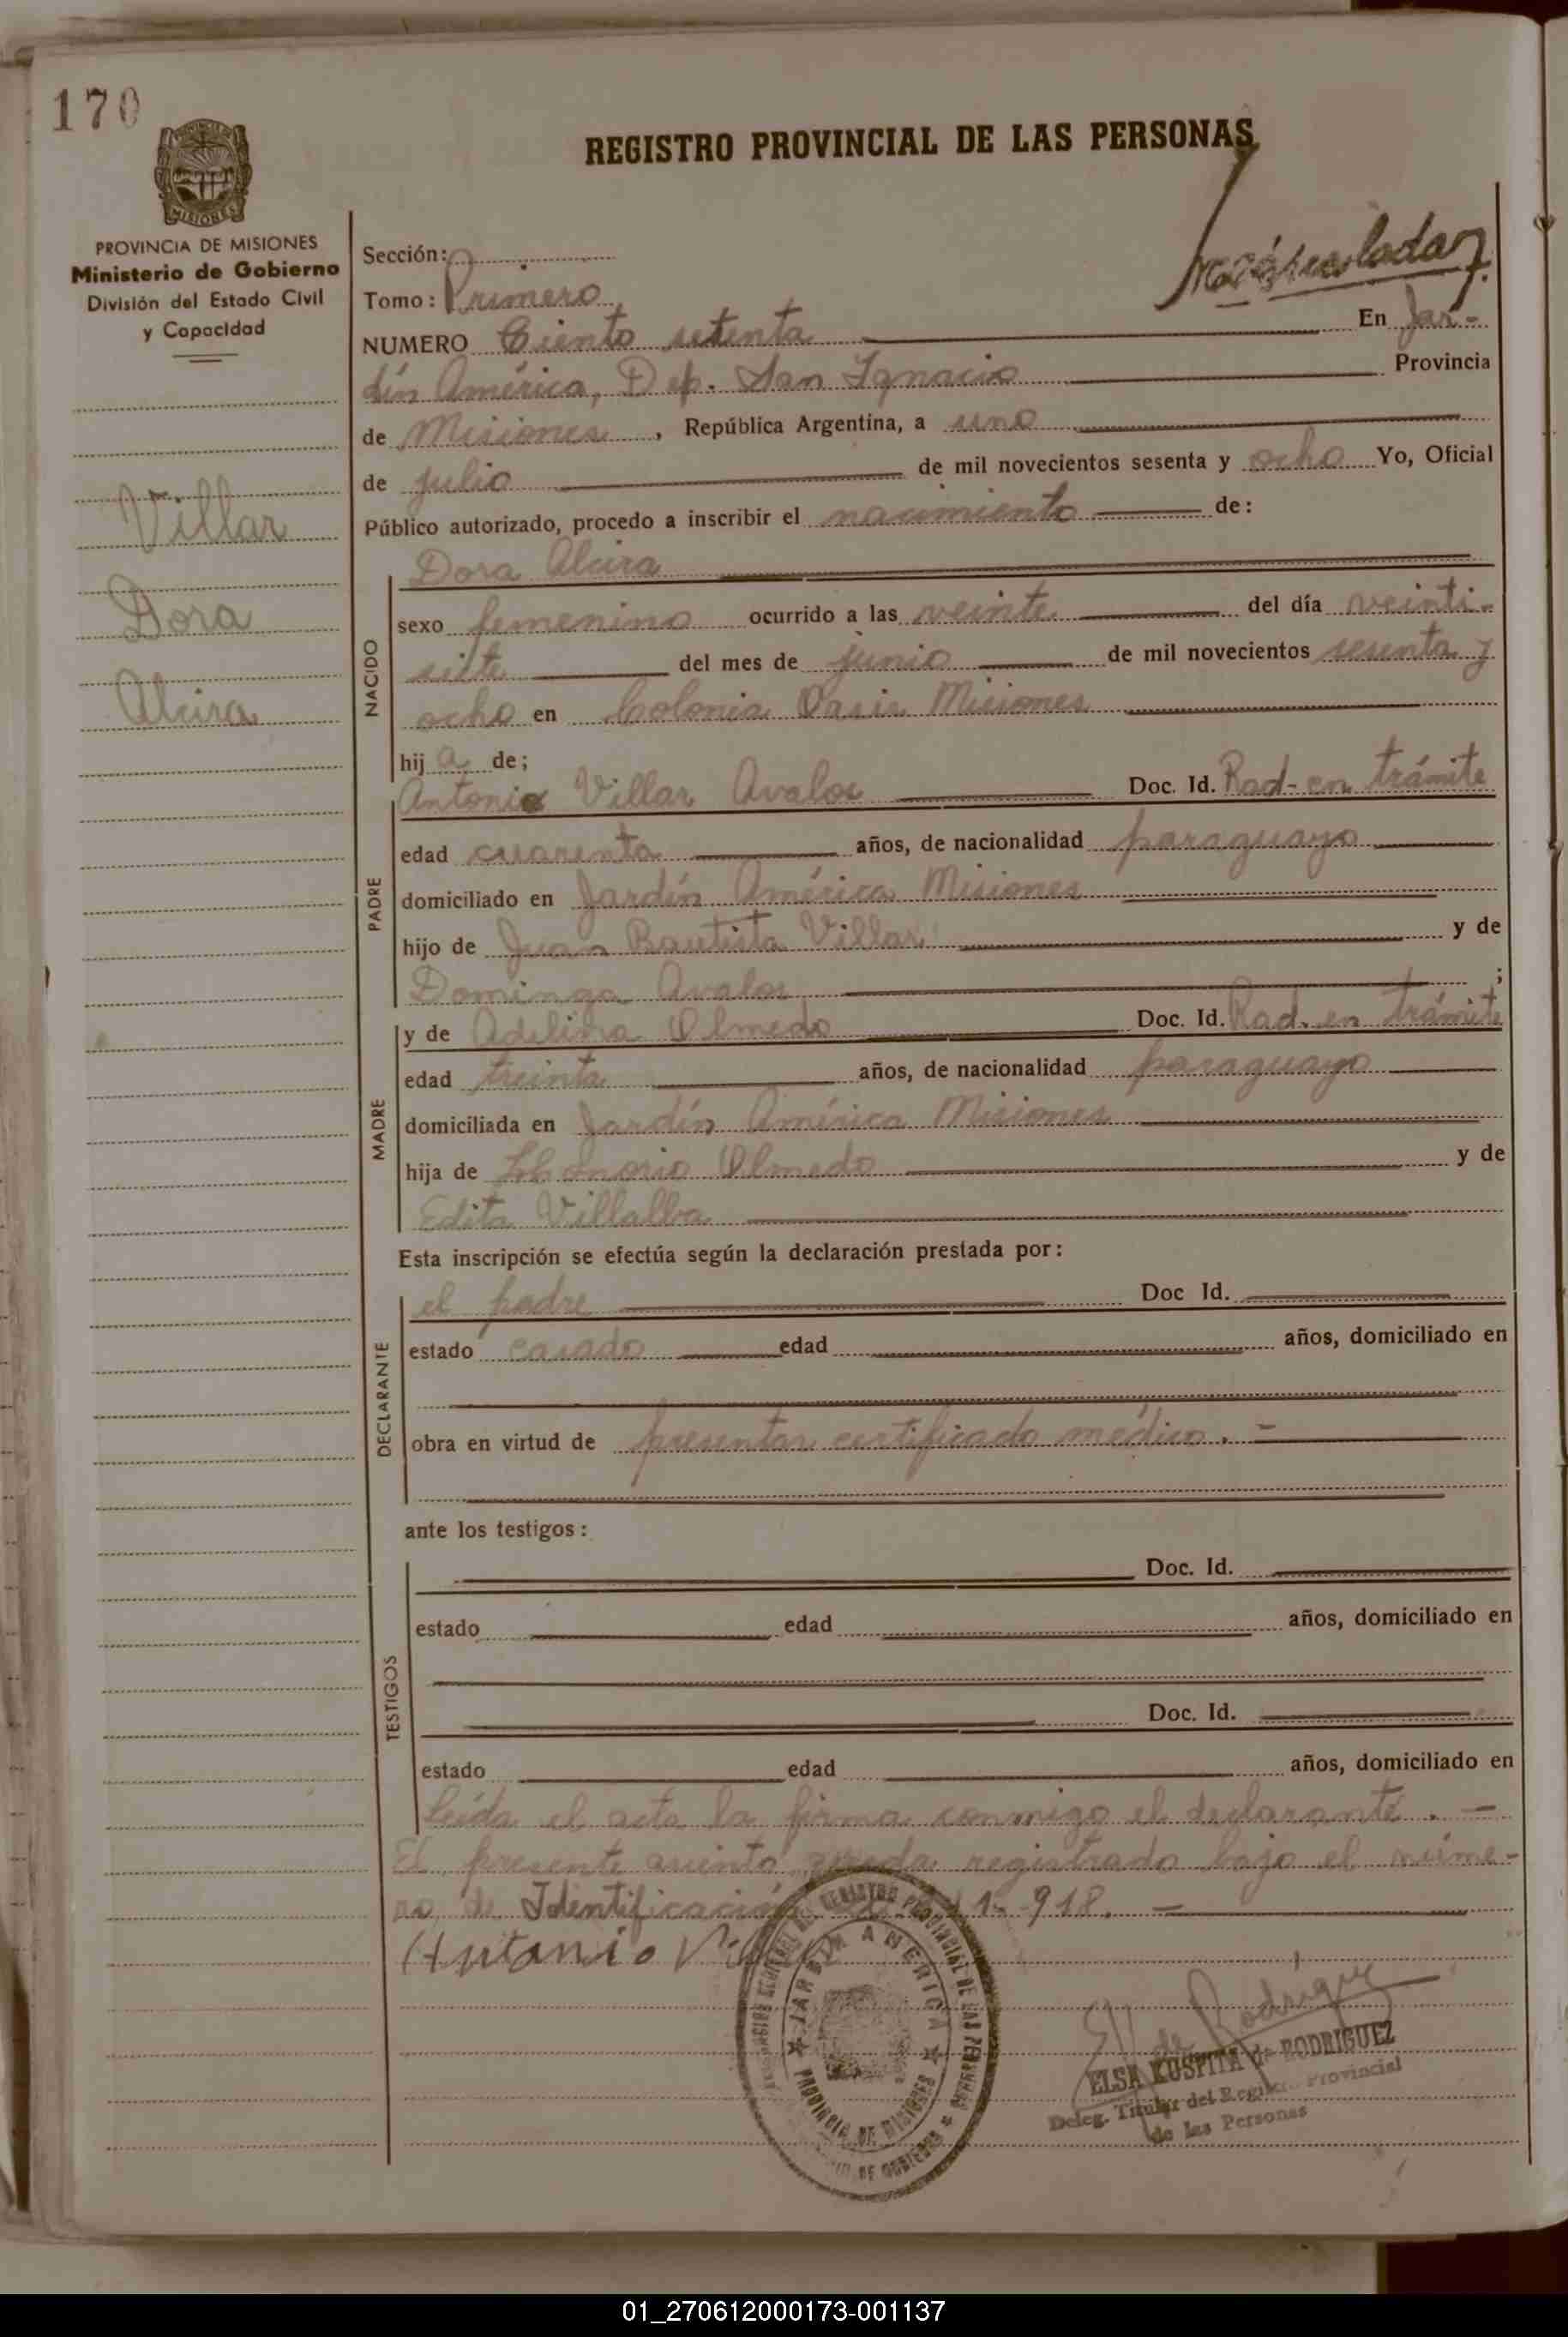 170
REGISTRO PROVINCIAL DE LAS PERSONAS
MISIONES
PROVINCIA DE MISIONES
Ministerio de Gobierno
División del Estado Civil
y Capacidad
Villar
Dora
Alcira
Sección:
Tomo: Primero
NUMERO Ciento setenta En Jar-
dín América, Dep. San Ignacio Provincia
de Misiones, República Argentina, a uno
de julio de mil novecientos sesenta y ocho Yo, Oficial
Público autorizado, procedo a inscribir el nacimiento de:
NACIDO
Dora Alcira
sexo femenino ocurrido a las veinte del día veinti-
siete del mes de junio de mil novecientos sesenta y
ocho en Colonia Oasis Misiones
hij a de;
PADRE
Antonio Villar Avalos Doc. Id. Rad-en trámite
edad cuarenta años, de nacionalidad paraguayo
domiciliado en Jardín América Misiones
hijo de Juan Bautista Villar y de
Dominga Avalos ;
MADRE
y de Adelina Olmedo Doc. Id. Rad. en trámite
edad treinta años, de nacionalidad paraguayo
domiciliada en Jardín América Misiones
hija de Olmedo y de
Edita Villalba
Esta inscripción se efectúa según la declaración prestada por:
DECLARANTE
el padre Doc Id.
estado casado edad años, domiciliado en
obra en virtud de presentar certificado médico. -
ante los testigos:
TESTIGOS
Doc. Id.
estado edad años, domiciliado en
Doc. Id.
estado edad años, domiciliado en
Leída el acta la firma conmigo el declarante. -
El presente asiento queda registrado bajo el núme-
ro de Identificación 918. -
Antonio
JARDIN AMERICA
PROVINCIA DE MISIONES
REGISTRO PROVINCIAL DE LAS PERSONAS
de Rodríguez
ELSA KUSPITA de RODRIGUEZ
Deleg. Titular del Registro Provincial
de las Personas
01_270612000173-001137